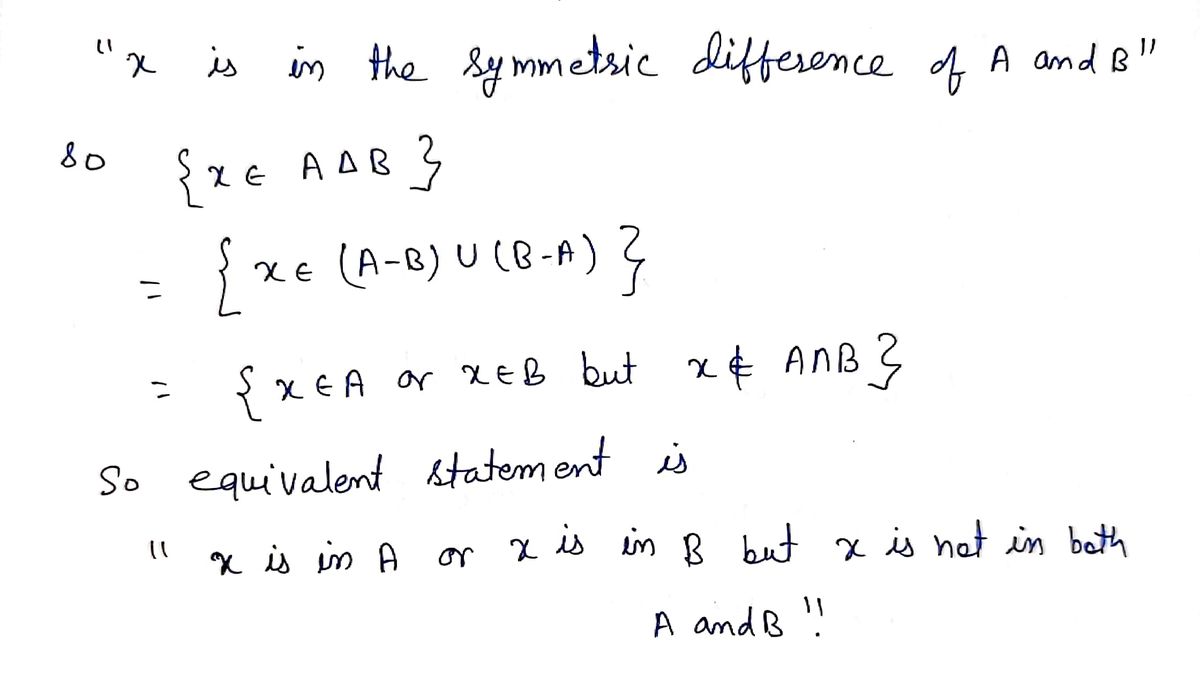 "x is in the symmetric difference of A and B"
so {x ∈ A Δ B}
= {x ∈ (A-B) ∪ (B-A)}
= {x ∈ A or x ∈ B but x ∉ A∩B}
So equivalent statement is
" x is in A or x is in B but x is not in both
A and B".